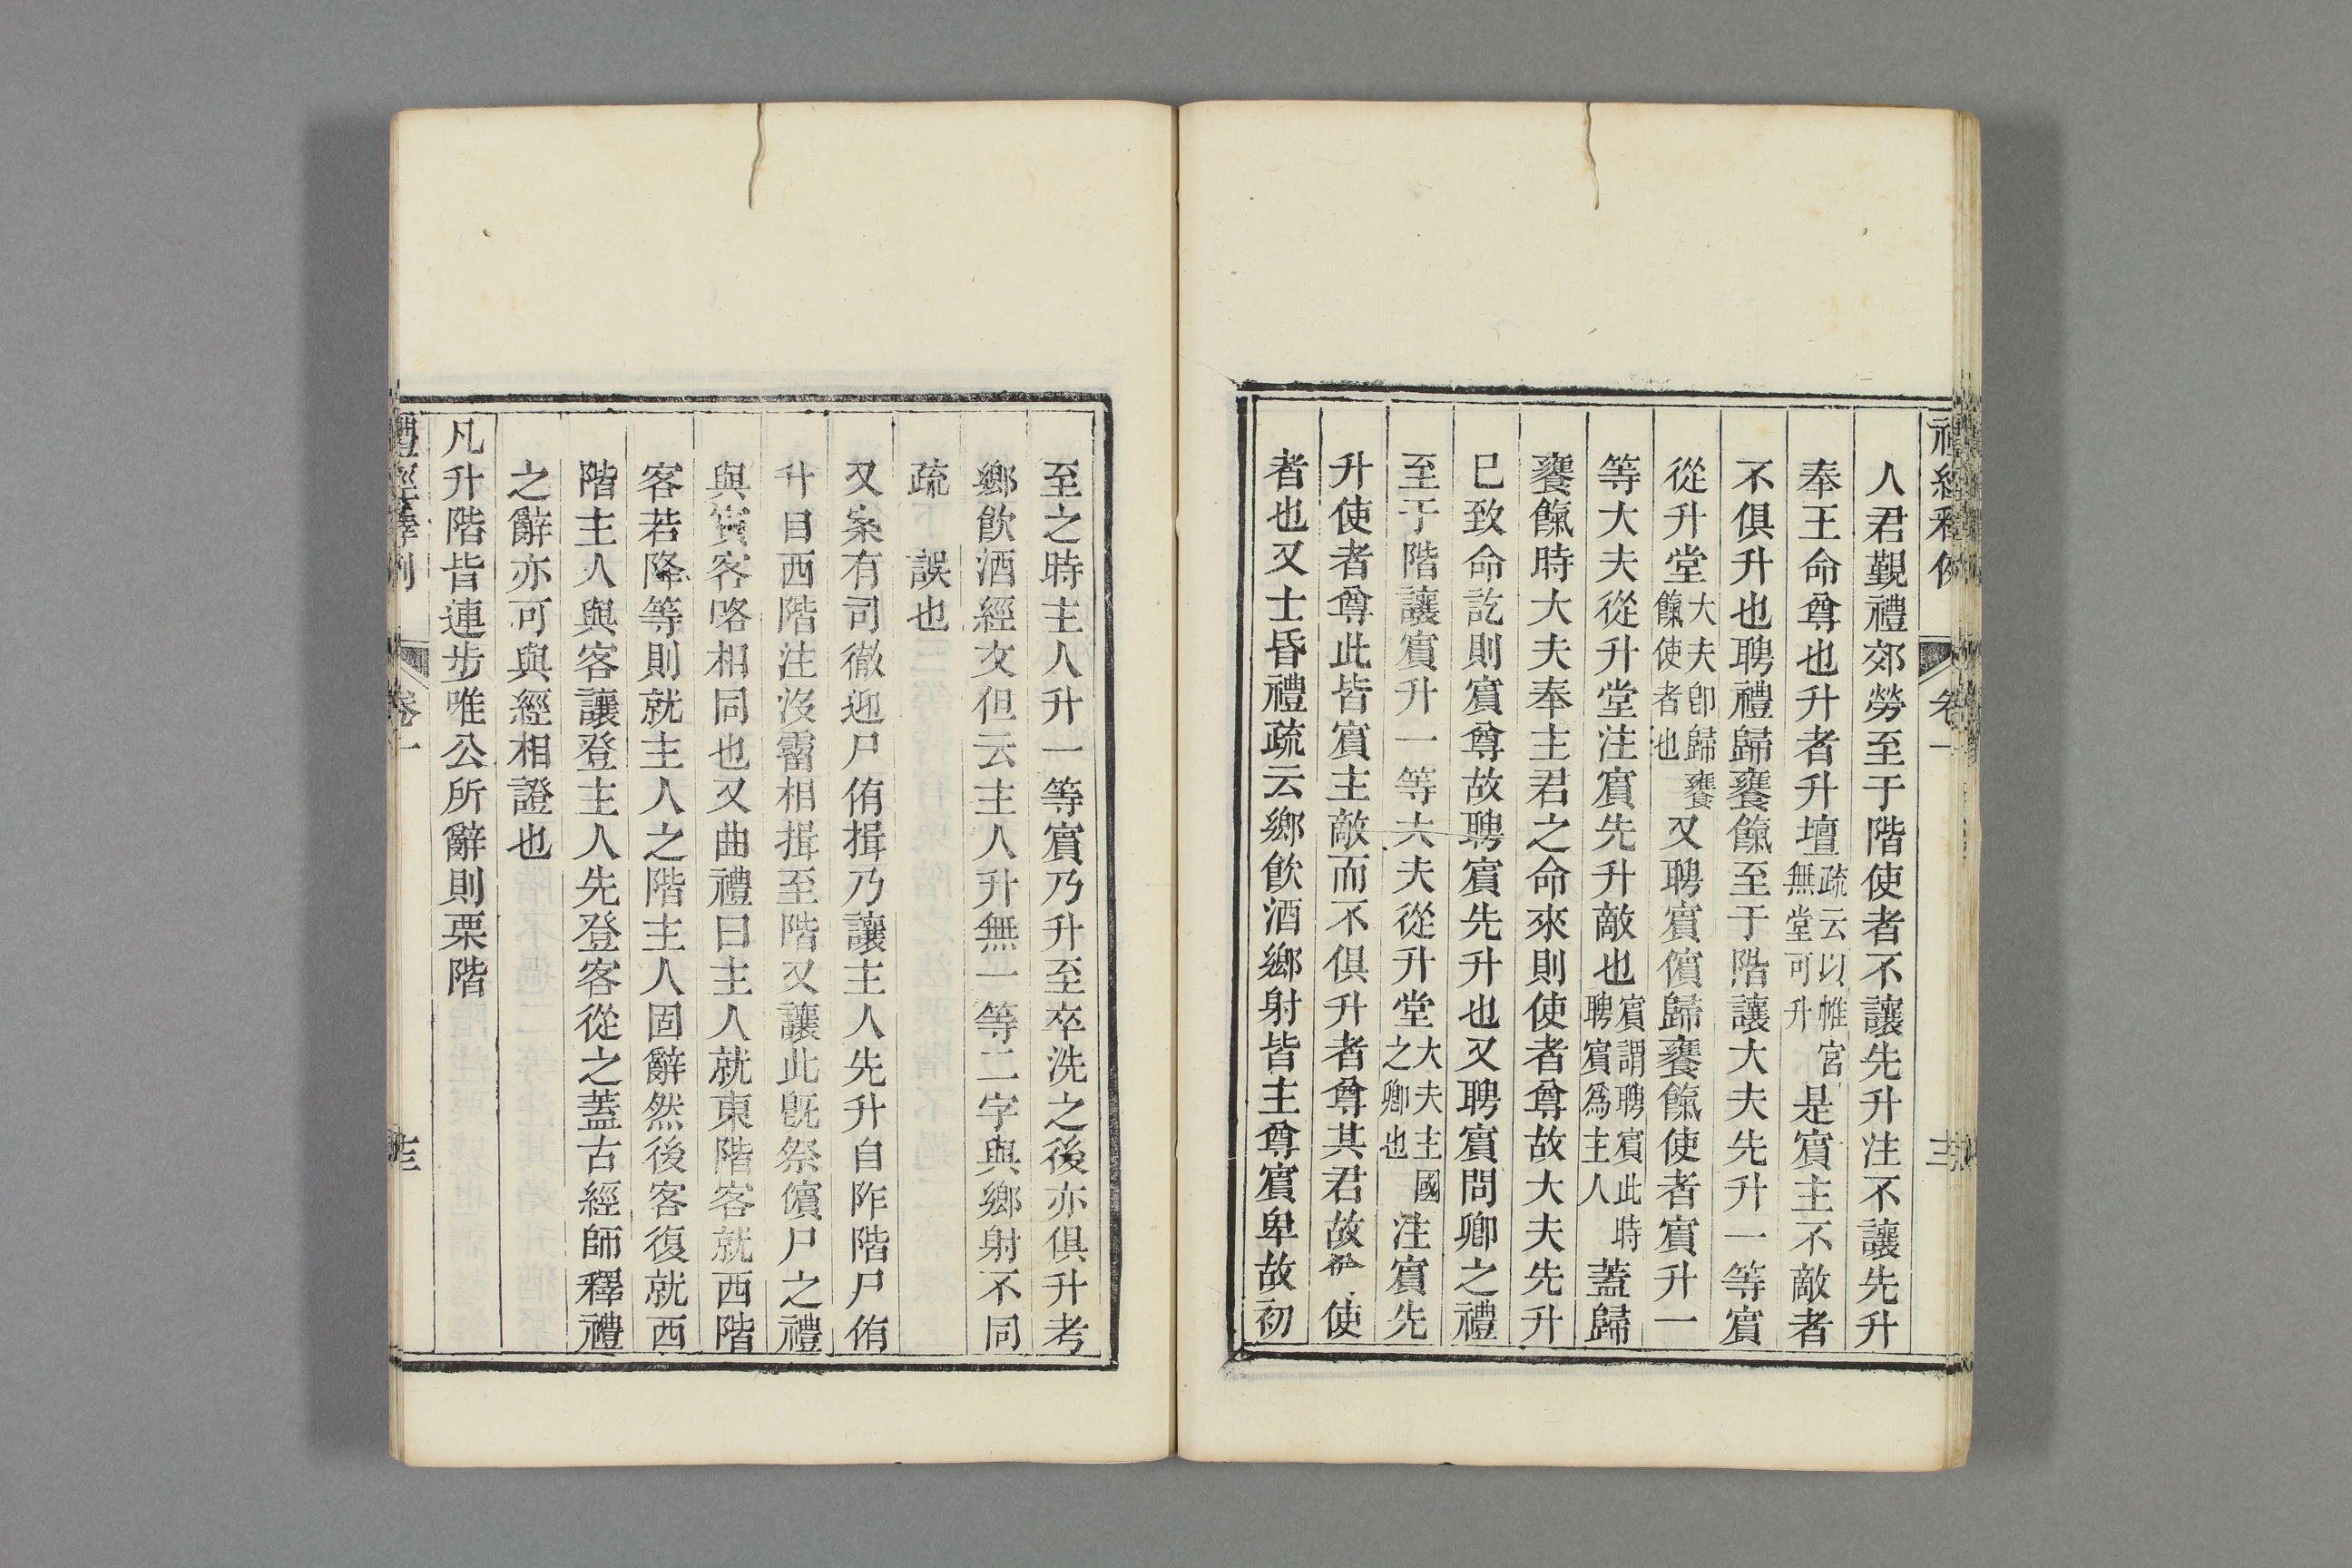 禮經釋例 卷一
人君覲禮郊勞至于階使者不讓先升注不讓先升
奉王命尊也升者升壇疏云以帷宮無堂可升是賓主不敵者
不俱升也聘禮歸饔餼至于階讓大夫先升一等賓
從升堂大夫卽歸饔餼使者也又聘賓儐歸饔餼使者賓升一
等大夫從升堂注賓先升敵也賓謂聘賓此時聘賓爲主人蓋歸
饔餼時大夫奉主君之命來則使者尊故大夫先升
已致命訖則賓尊故聘賓先升也又聘賓問卿之禮
至于階讓賓升一等大夫從升堂大夫主國之卿也注賓先
升使者尊此皆賓主敵而不俱升者尊其君故 使
者也又士昏禮疏云鄉飲酒鄉射皆主尊賓卑故初
至之時主人升一等賓乃升至卒洗之後亦俱升考
鄉飲酒經文但云主人升無一等二字與鄉射不同
疏 誤也
又案有司徹迎尸侑揖乃讓主人先升自阼階尸侑
升自西階注沒霤相揖至階又讓此旣祭儐尸之禮
與賓客略相同也又曲禮曰主人就東階客就西階
客若降等則就主人之階主人固辭然後客復就西
階主人與客讓登主人先登客從之蓋古經師釋禮
之辭亦可與經相證也
凡升階皆連步唯公所辭則栗階
禮經釋例 卷一